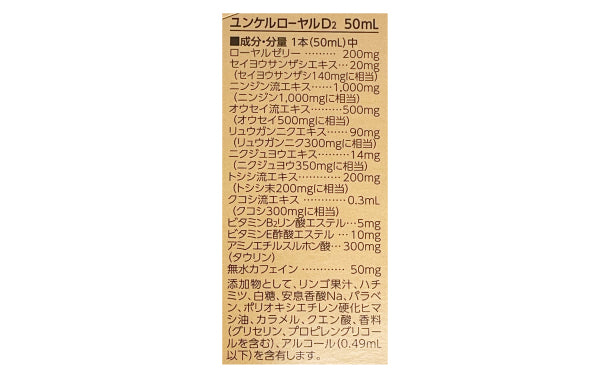 ユンケルローヤルD2 50mL
■成分・分量 1本(50mL)中
ローヤルゼリー ……… 200mg
セイヨウサンザシエキス…20mg
(セイヨウサンザシ140mgに相当)
ニンジン流エキス……1,000mg
(ニンジン1,000mgに相当)
オウセイ流エキス………500mg
(オウセイ500mgに相当)
リュウガンニクエキス……90mg
(リュウガンニク300mgに相当)
ニクジュヨウエキス………14mg
(ニクジュヨウ350mgに相当)
トシシ流エキス…………200mg
(トシシ末200mgに相当)
クコシ流エキス …………0.3mL
(クコシ300mgに相当)
ビタミンB2リン酸エステル…5mg
ビタミンE酢酸エステル …10mg
アミノエチルスルホン酸…300mg
(タウリン)
無水カフェイン ………… 50mg
添加物として、リンゴ果汁、ハチ
ミツ、白糖、安息香酸Na、パラベ
ン、ポリオキシエチレン硬化ヒマ
シ油、カラメル、クエン酸、香料
(グリセリン、プロピレングリコー
ルを含む)、アルコール(0.49mL
以下)を含有します。